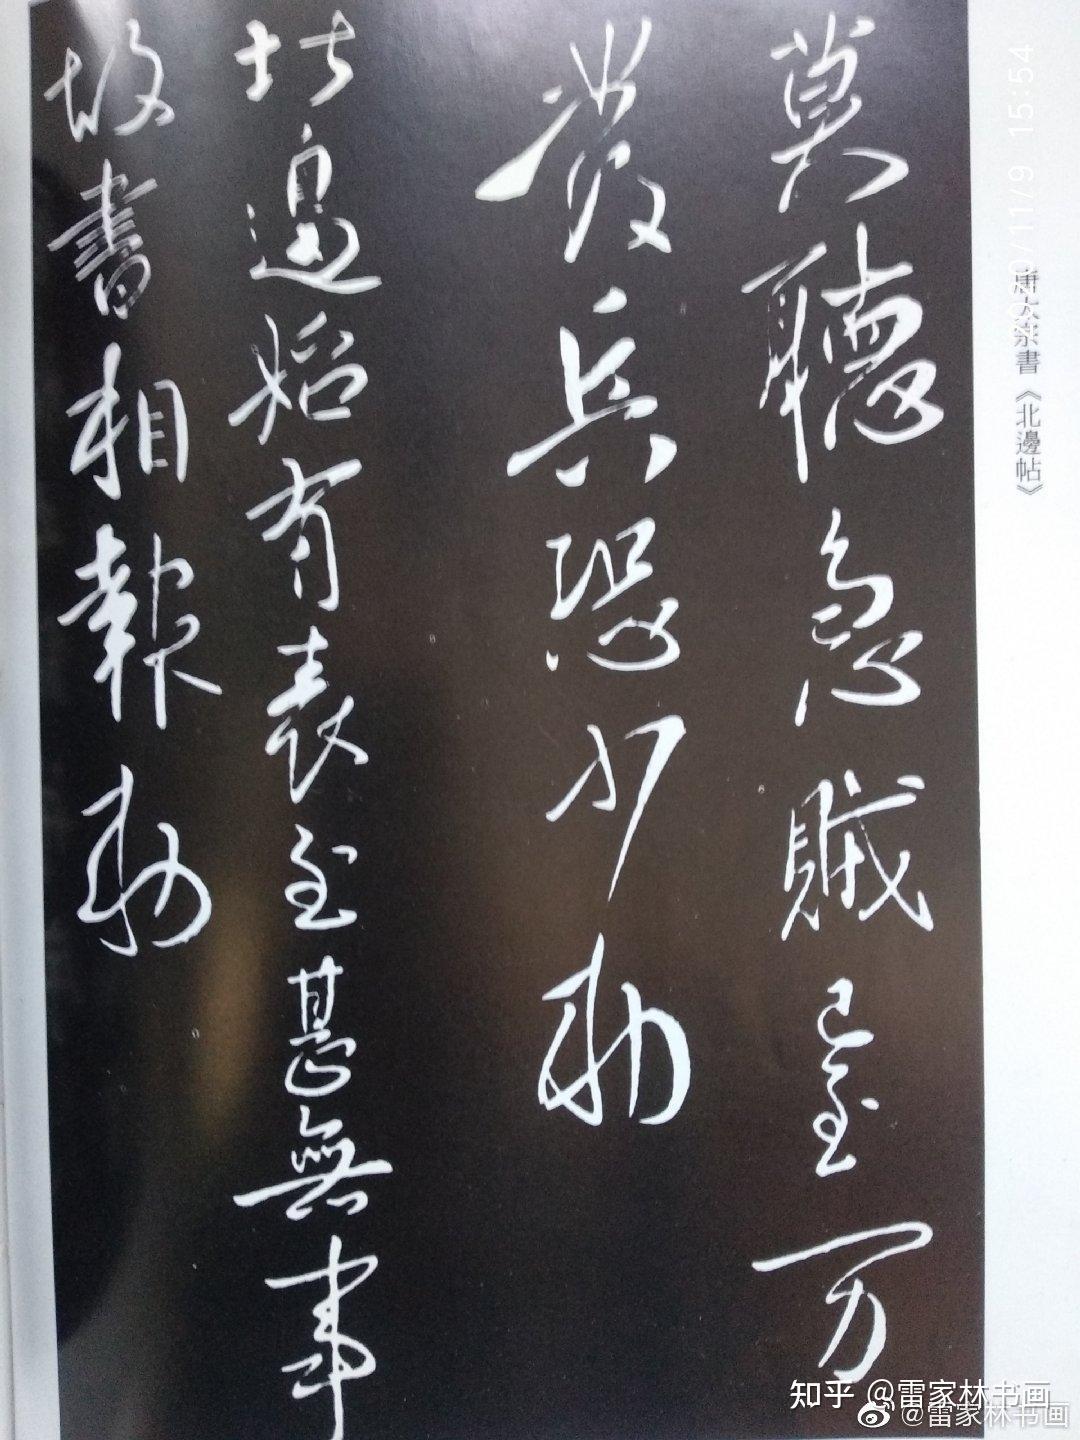 莫聽急賊已至万
發兵恐少勅
北邊始有表至甚無事
故書相報勅
唐太宗書《北邊帖》
2020/11/9 15:54
知乎 @雷家林书画
@雷家林书画